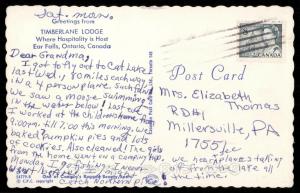 Sat. morn.
Greetings from
TIMBERLANE LODGE
Where Hospitality is Host
Ear Falls, Ontario, Canada
Dear Grandma,
I got to fly out to Cat Lake
last Wed., 90 miles each way
in a 4 person plane. Such fun!
We saw a moose swimming
in the water below! Last nite
I worked at the children's home
til 7:00 this morning. We
baked pumpkin pies and lots
of cookies. Also cleaned! The girls
from the home went on a camping trip.
Monday I
catch Northern
Post Card
CANADA
Mrs. Elizabeth
Thomas
RD#1
Millersville, PA
17551
we hear planes taking
off from the lake all
time.